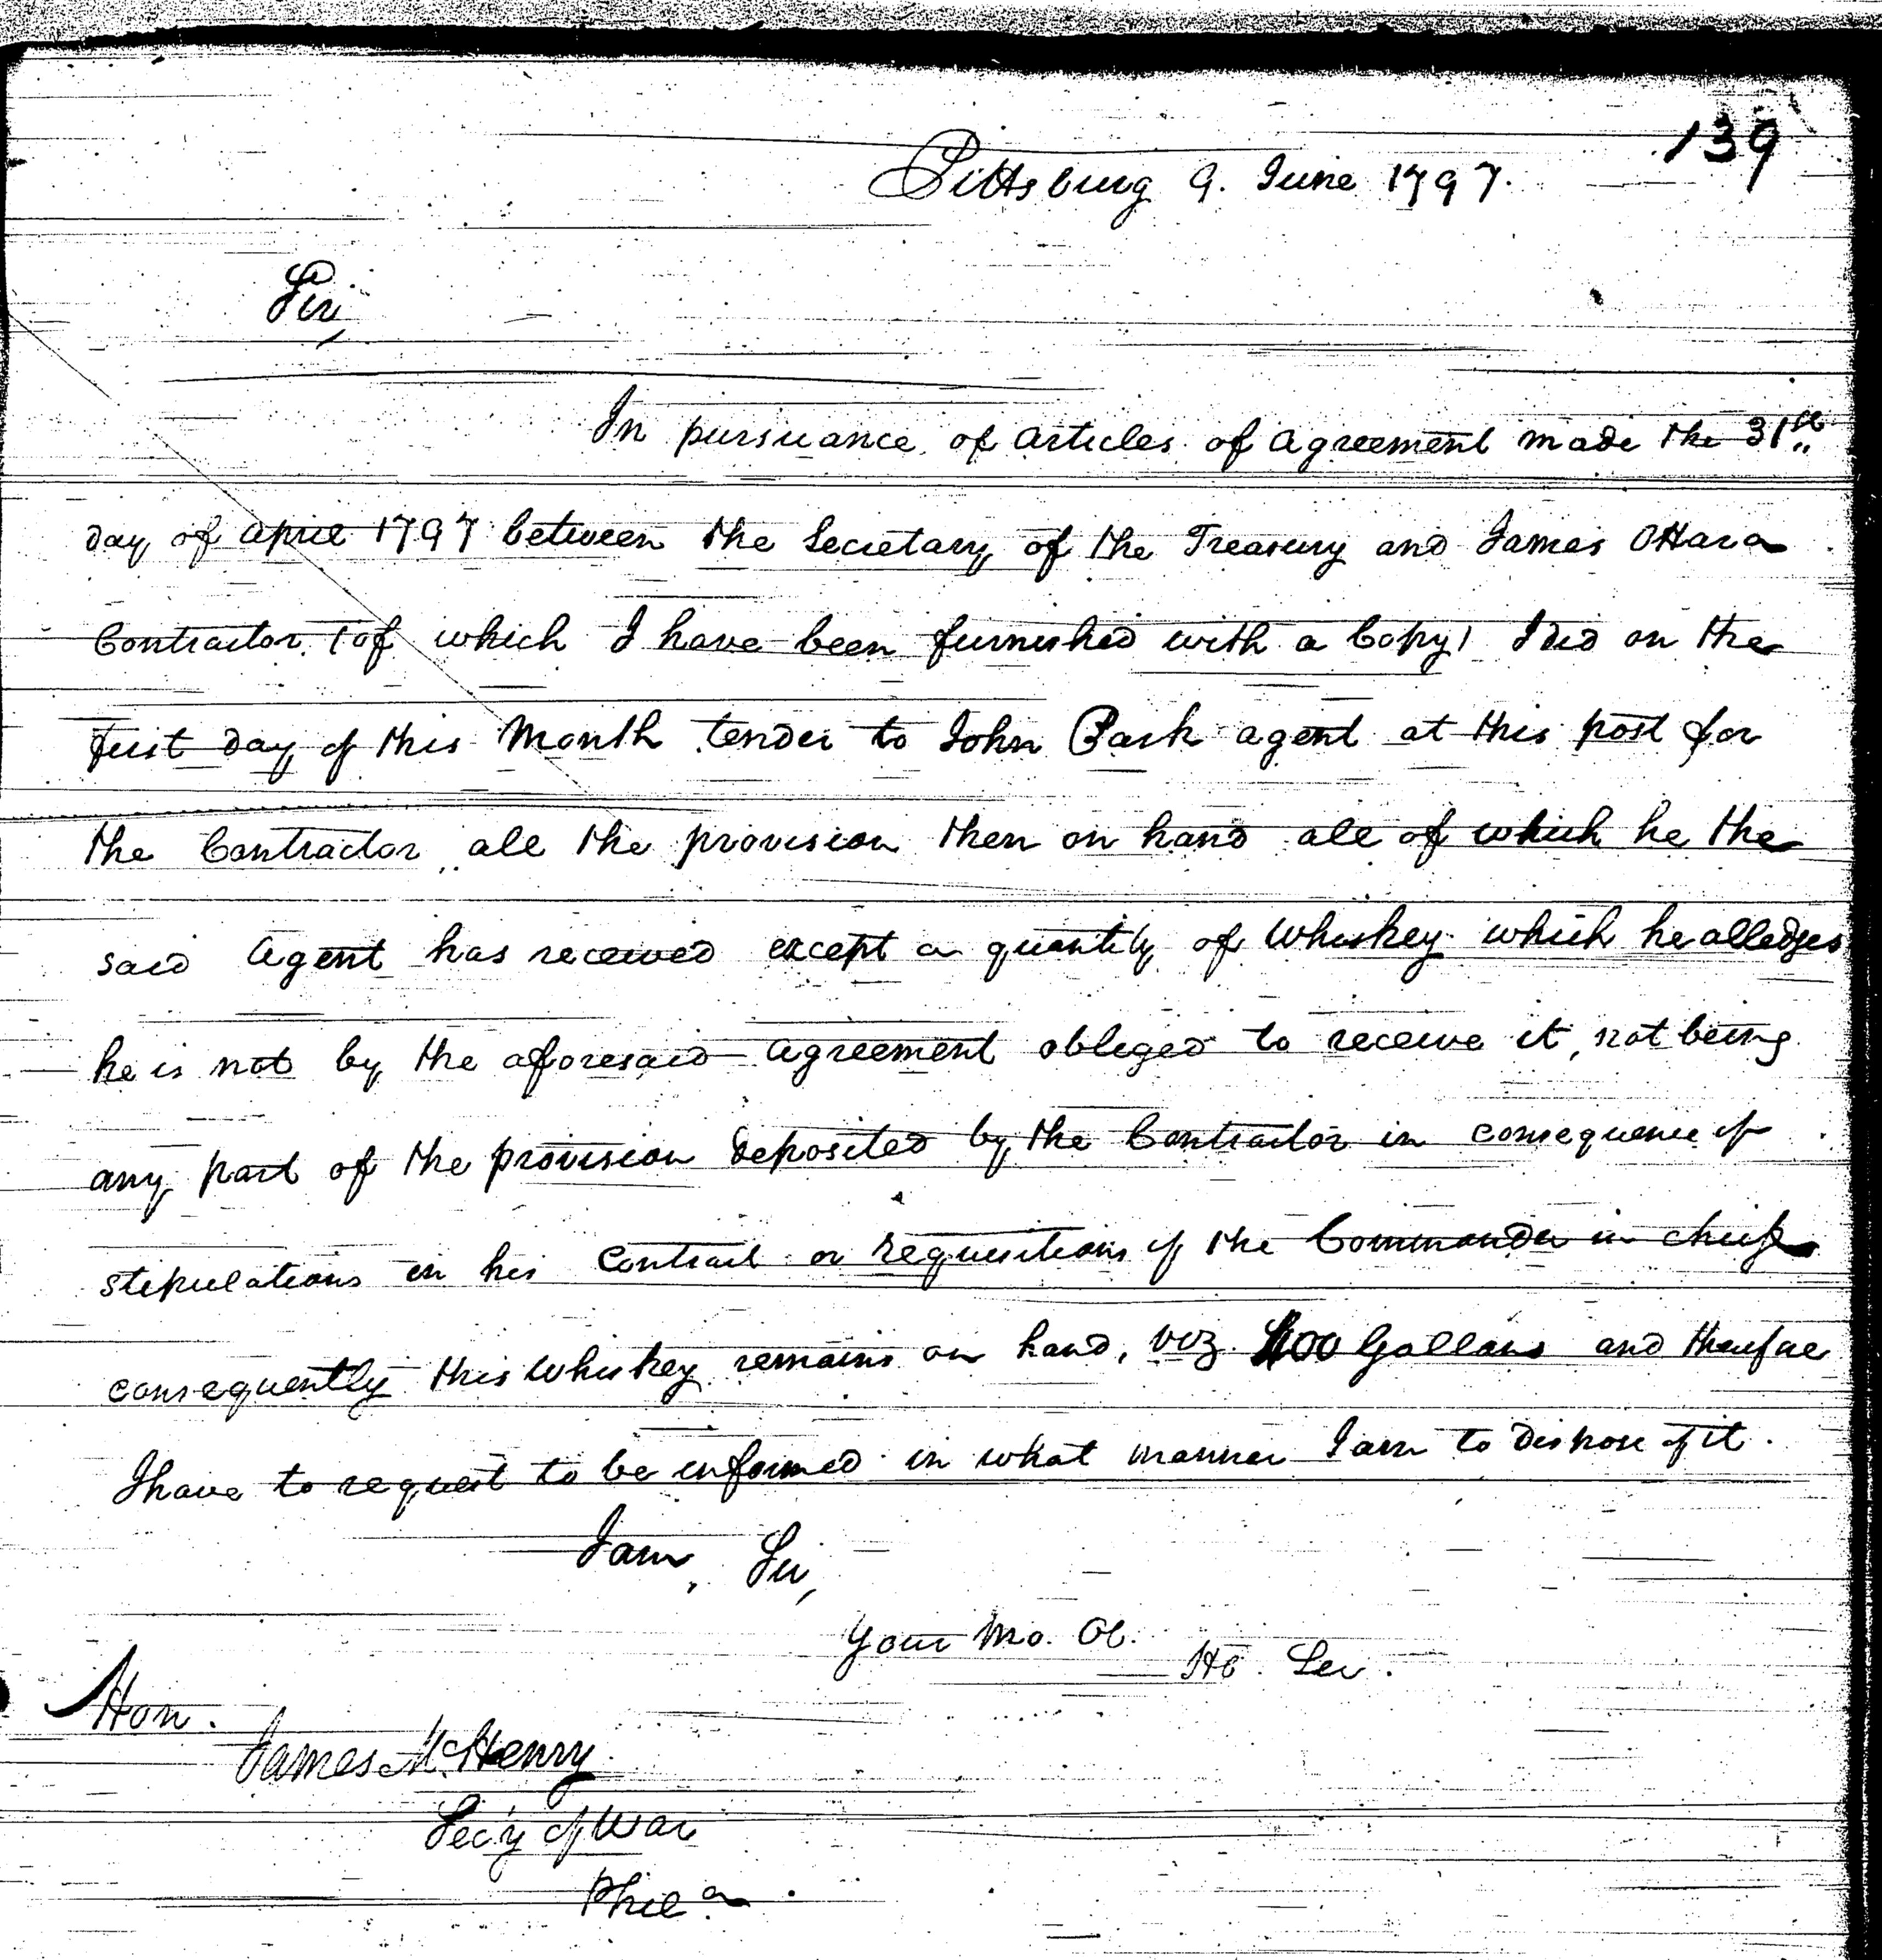 139
Pittsburg 9. June 1797.
Sir,
In pursuance of articles of agreement made the 31st
day of april 1797 between the Secretary of the Treasury and James OHara
Contractor (of which I have been furnished with a Copy) I did on the
first day of this Month tender to John Park agent at this post for
the Contractor all the provision then on hand all of which he the
said Agent has received except a quantity of Whiskey which he alledges
he is not by the aforesaid agreement obliged to receive it, not being
any part of the provision deposited by the Contractor in consequence of
stipulations in his Contract or requisitions of the Commander in chief
consequently this Whiskey remains on hand, viz 400 Gallons and therefore
I have to request to be informed in what manner I am to dispose of it.
I am, Sir,
Your Mo. Ob.
Ho. Ser.
Hon.
James McHenry
Sec'y of War
Phila.